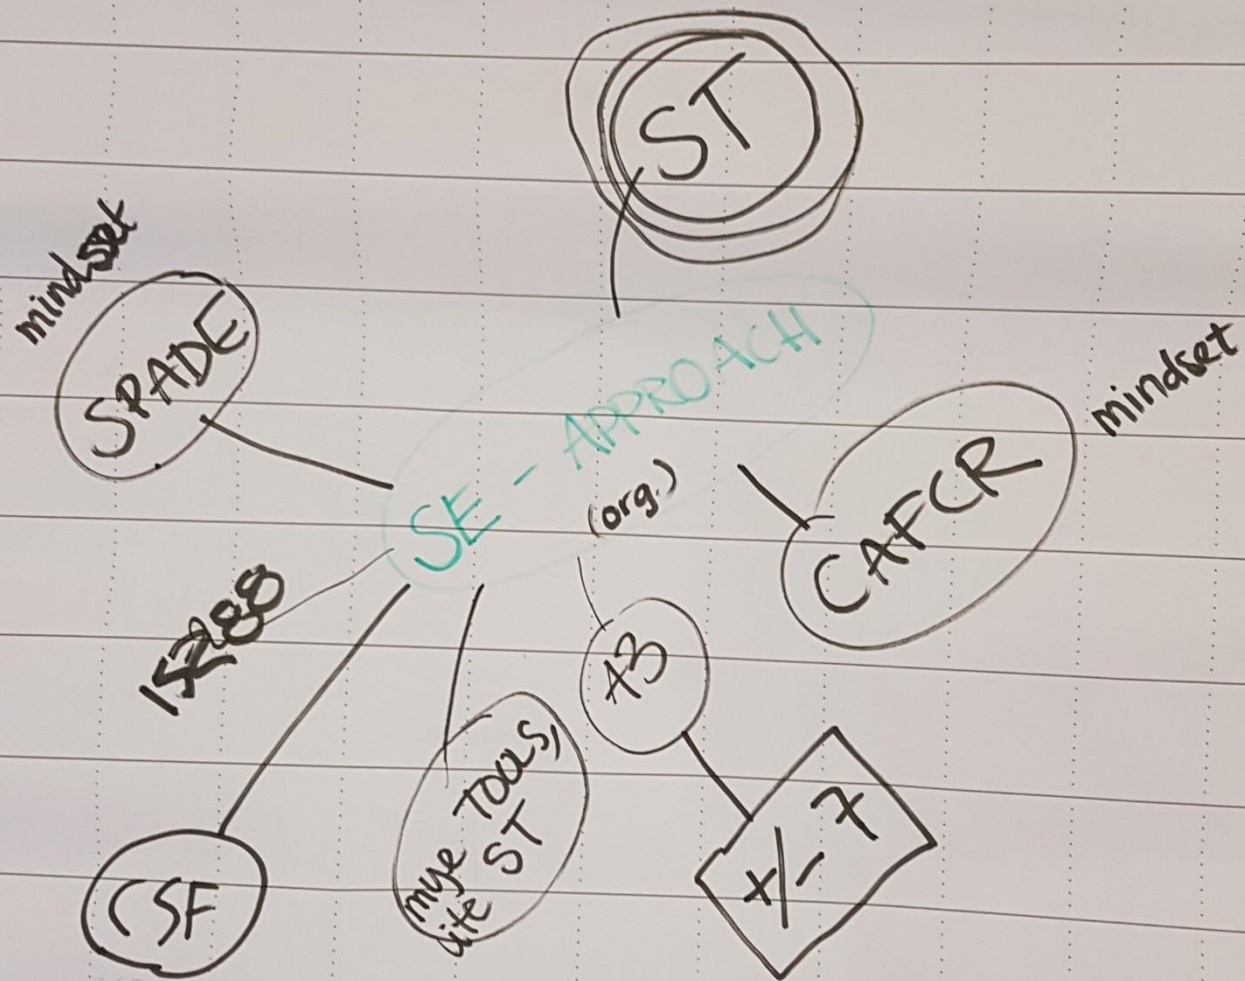 ST
mindset
SPADE
SE - APPROACH
(org.)
mindset
CAFCR
15288
A3
mye TOOLS,
lite ST
+/- 7
CSF